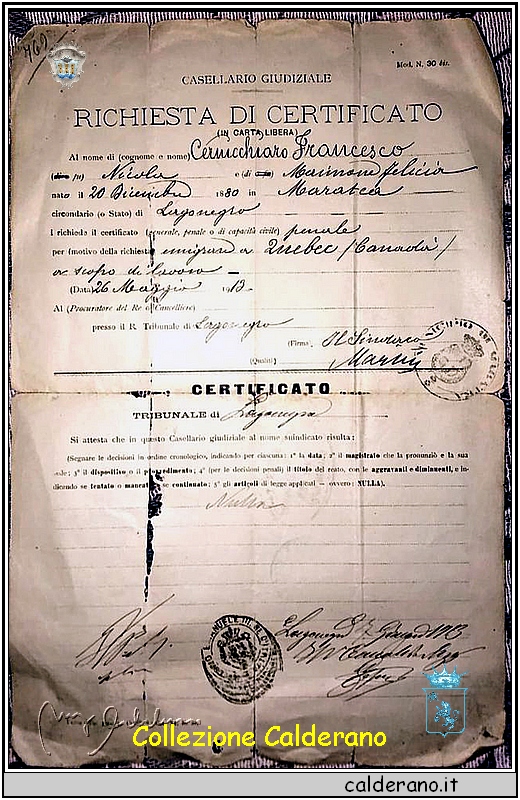 469
Mod. N. 30 bis.
CASELLARIO GIUDIZIALE
RICHIESTA DI CERTIFICATO
(IN CARTA LIBERA)
Al nome di (cognome e nome) Cernicchiaro Francesco
Nicola e (di Maimone Felicia
nato il 20 Dicembre 1880 in Maratea
circondario (o Stato) di Lagonegro
I richiedo il certificato (generale, penale o di capacità civile) penale
per (motivo della richiesta) emigrare a Quebec (Canadà)
a scopo di lavoro —
(Data) 26 Maggio 1913-
Al (Procuratore del Re o Cancelliere)
presso il R. Tribunale di Lagonegro
(Firma) Il Sindaco
(Qualità)
CERTIFICATO
TRIBUNALE di Lagonegro
Si attesta che in questo Casellario giudiziale al nome suindicato risulta:
(Segnare le decisioni in ordine cronologico, indicando per ciascuna: 1° la data; 2° il magistrato che la pronunziò e la sua
sede; 3° il dispositivo o il provvedimento; 4° (per le decisioni penali) il titolo del reato, con le aggravanti e diminuenti, e in-
dicando se tentato o mancato, se continuato; 5° gli articoli di legge applicati — ovvero: NULLA).
Nulla
Lagonegro 1913
Collezione Calderano
calderano.it